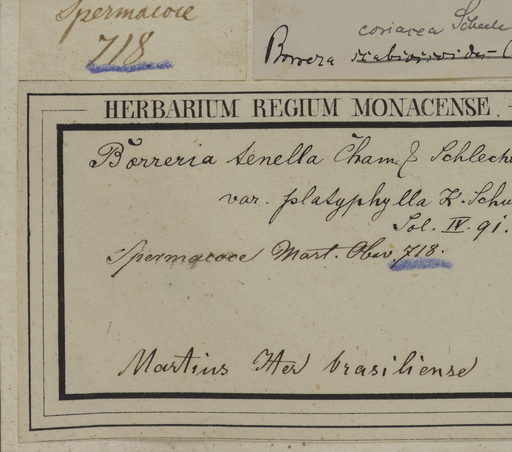 Spermacoce
718
coriacea Scheele
Borrera
HERBARIUM REGIUM MONACENSE
Borreria tenella Cham. & Schlecht
var. platyphylla K. Schu
Sol. IV. 91.
Spermacoce Mart. Obsv. 718.
Martius Iter brasiliense